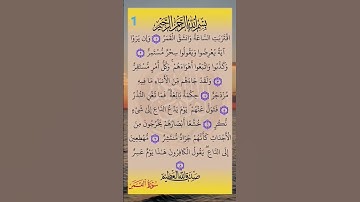 1
بِسْمِ اللَّهِ الرَّحْمَٰنِ الرَّحِيمِ
اقْتَرَبَتِ السَّاعَةُ وَانشَقَّ الْقَمَرُ ۝ وَإِن يَرَوْا
آيَةً يُعْرِضُوا وَيَقُولُوا سِحْرٌ مُّسْتَمِرٌّ ۝
وَكَذَّبُوا وَاتَّبَعُوا أَهْوَاءَهُمْ ۚ وَكُلُّ أَمْرٍ مُّسْتَقِرٌّ
۝ وَلَقَدْ جَاءَهُم مِّنَ الْأَنبَاءِ مَا فِيهِ
مُزْدَجَرٌ ۝ حِكْمَةٌ بَالِغَةٌ ۖ فَمَا تُغْنِ النُّذُرُ
۝ فَتَوَلَّ عَنْهُمْ ۘ يَوْمَ يَدْعُ الدَّاعِ إِلَىٰ شَيْءٍ
نُّكُرٍ ۝ خُشَّعًا أَبْصَارُهُمْ يَخْرُجُونَ مِنَ
الْأَجْدَاثِ كَأَنَّهُمْ جَرَادٌ مُّنتَشِرٌ ۝ مُّهْطِعِينَ
إِلَى الدَّاعِ ۖ يَقُولُ الْكَافِرُونَ هَٰذَا يَوْمٌ عَسِرٌ
۝
صدق الله العظيم
سورة القمر